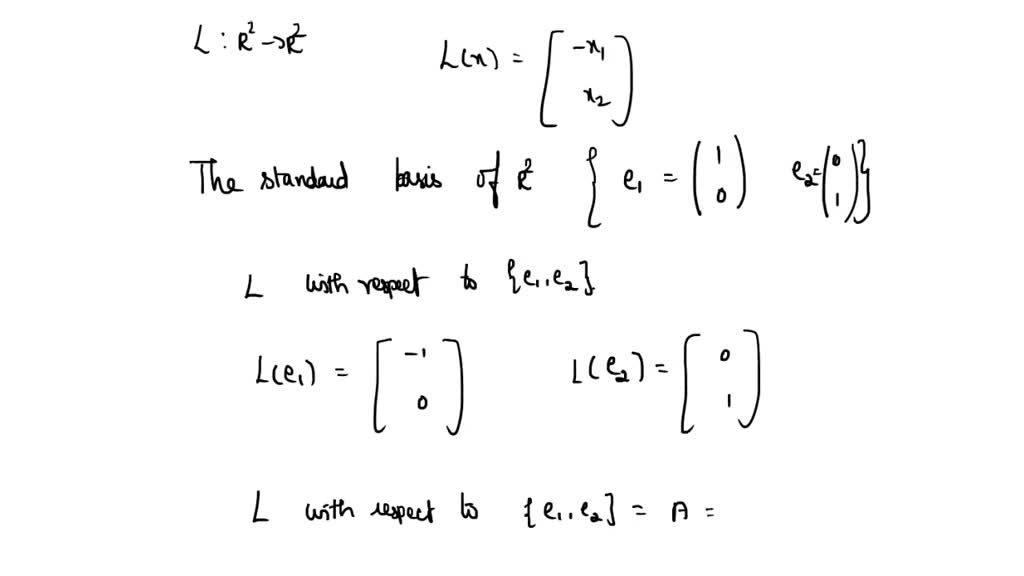 L : R² → R² L(x) = [ -x₁ x₂ ]
The standard basis of R² { e₁ = ( 1 0 ) e₂ = ( 0 1 ) }
L with respect to {e₁, e₂}.
L(e₁) = [ -1 0 ] L(e₂) = [ 0 1 ]
L with respect to {e₁, e₂} = A =